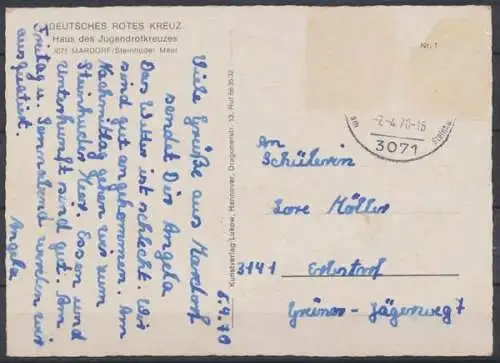 DEUTSCHES ROTES KREUZ
Haus des Jugendrotkreuzes
3071 MARDORF/Steinhuder Meer
6.4.70
Viele Grüße aus Mardorf
sendet Dir Angela
Das Wetter ist schlecht. Wir
sind gut angekommen. Am
Nachmittag gehen wir zum
Steinhuder Meer. Essen und
Unterkunft sind gut. Am
Freitag u. Sonnabend werden wir
ausgeführt.
Angela
Kunstverlag Lukow, Hannover, Dragonerstr. 13, Ruf 66 35 32
Nr. 1
-7.-4.70-16
am
3071
An
Schülerin
Lore Möller
3141 Erbstorf
Grüner-Jägerweg 7